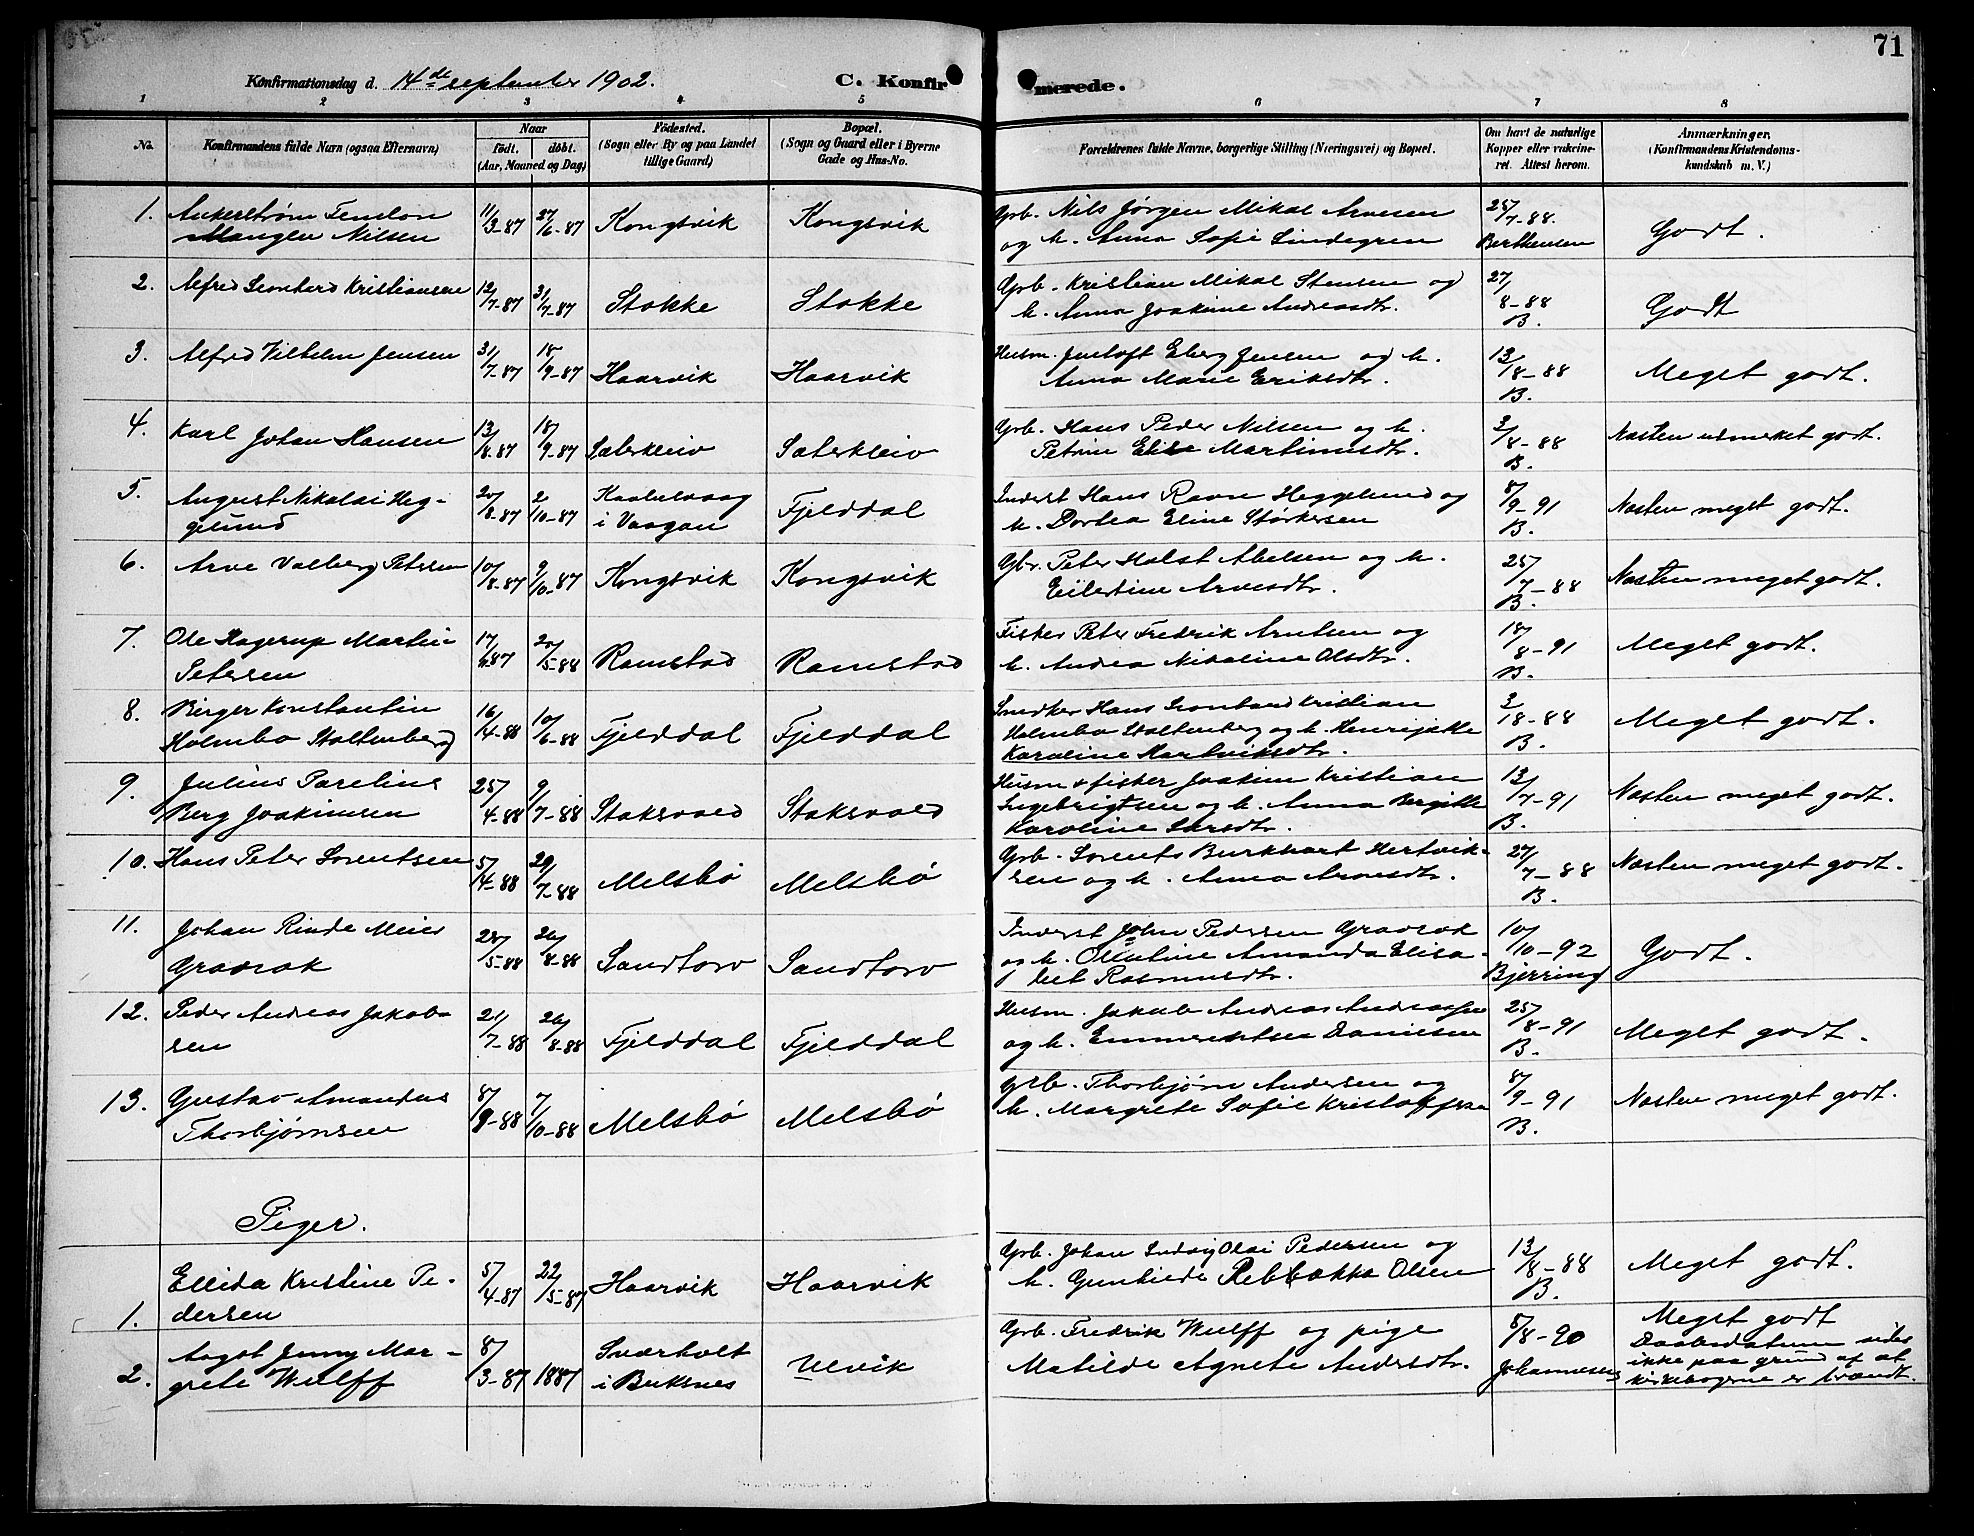 71
Konfirmationsdag d. 14de september 1902.
C. Konfirmerede.
1 2 3 4 5 6 7 8
No.
Konfirmandens fulde Navn (ogsaa Efternavn)
Naar
født. døbt.
(Aar, Maaned og Dag)
Fødested.
(Sogn eller By og paa Landet
tillige Gaard)
Bopæl.
(Sogn og Gaard eller i Byerne
Gade og Hus-No.
Forældrenes fulde Navne, borgerlige Stilling (Næringsvei) og Bopæl.
Om havt de naturlige
Kopper eller vakcine-
ret. Attest herom.
Anmærkninger.
(Konfirmandens Kristendoms-
kundskab m. V.)
1. Ankerstrøm Tenston
Mangen Nilsen
11/3-87 27/6-87 Kongsvik Kongsvik
Grb. Nils Jørgen Mikal Arnesen
og h. Anna Sofie Lindegren
25/7-88. Berthensen
Godt.
2. Alfred Leonhard Kristiansen
12/7-87 31/7-87 Stokke Stokke
Grb. Kristian Mikal Stensen og
h. Anna Joakime Andreasdt.
27/8-88 B.
Godt
3. Alfred Vilhelm Jensen
31/7-87 18/9-87 Haarvik Haarvik
Husm. Jentoft Eberg Jensen og h.
Anna Marie Eriksdtr.
13/8-88 B.
Meget godt.
4. Karl Johan Hansen
13/8-87 18/9-87 Sæterkleiv Sæterkleiv
Grb. Hans Peder Nilsen og h.
Petrine Elise Martinusdtr.
3/8-88 B.
Næsten udmerket godt.
5. August Nikolai Heg-
gelund
20/8-87 2/10-87 Kabelvaag
i Vaagan
Fjelddal
Inderst Hans Ravn Heggelund og
h. Dortea Eline Størkersen
8/9-91 B.
Næsten meget godt.
6. Arne Valberg Petersen
10/8-87 9/10-87 Kongsvik Kongsvik
Gbr. Peter Holst Abelsen og h.
Eilertine Arnesdtr.
25/7-88 B.
Næsten meget godt.
7. Ole Hagerup Martin
Petersen
17/ 87 20/5-88 Ramstad Ramstad
Fisker Peter Fredrik Arntsen og
h. Andrea Nikoline Olsdtr.
18/8-91 B.
Meget godt.
8. Birger Konstantin
Holmbo Stoltenberg
16/4-88 10/6-88 Fjelddal Fjelddal
Snedker Hans Leonhard Kristian
Holmbo Stoltenberg og h. Henrijekke
Karoline Hartviksdtr.
3/8-88 B.
Meget godt.
9. Julius Parelius
Berg Joakimsen
25/4-88 9/7-88 Staksvold Staksvold
Husm & fisker Joakim Kristian
Ingebrigtsen og h. Anna Bergitte
Karoline Larsdtr.
13/7-91 B.
Næsten meget godt.
10. Hans Peter Lorentsen
5/4-88 29/7-88 Melsbø Melsbø
Grb. Lorents Burkhart Hertvik-
sen og h. Anna Arnesdtr.
27/7-88 B.
Næsten meget godt.
11. Johan Rinde Meier
Gravrok
28/5-88 26/8-88 Sandtorv Sandtorv
Inderst John Pedersen Gravrok
og h. Oluline Amanda Elisa-
bet Rasmusdtr.
10/10-92 Bjerring
Godt.
12. Peder Andreas Jakob-
sen
21/7-88 26/8-88 Fjelddal Fjelddal
Husm. Jakob Andreas Andreassen
og h. Emmerentsea Danielsen
25/8-91 B.
Meget godt.
13. Gustav Amandus
Thorbjørnsen
8/9-88 7/10-88 Melsbø Melsbø
Grb. Thorbjørn Andersen og
h. Margrete Sofie Kristoffersen
8/9-91 B.
Næsten meget godt.
Piger.
1. Ellida Kristine Pe-
dersen
5/4-87 22/5-87 Haarvik Haarvik
Grb. Johan Ludvig Olai Pedersen og
h. Gunhilde Rebbekka Olsen
13/8-88 B.
Meget godt.
2. Aagot Jenny Mar-
grete Wulff
8/3-87 1887 Sværholt
i Buksnes
Ulvik
Grb. Fredrik Wulff og pige
Matilde Agnete Andersdtr.
5/8-90 Johannesen
Meget godt
Daabsdatum vides
ikke paa grund af at
kirkebøgerne er brændt.